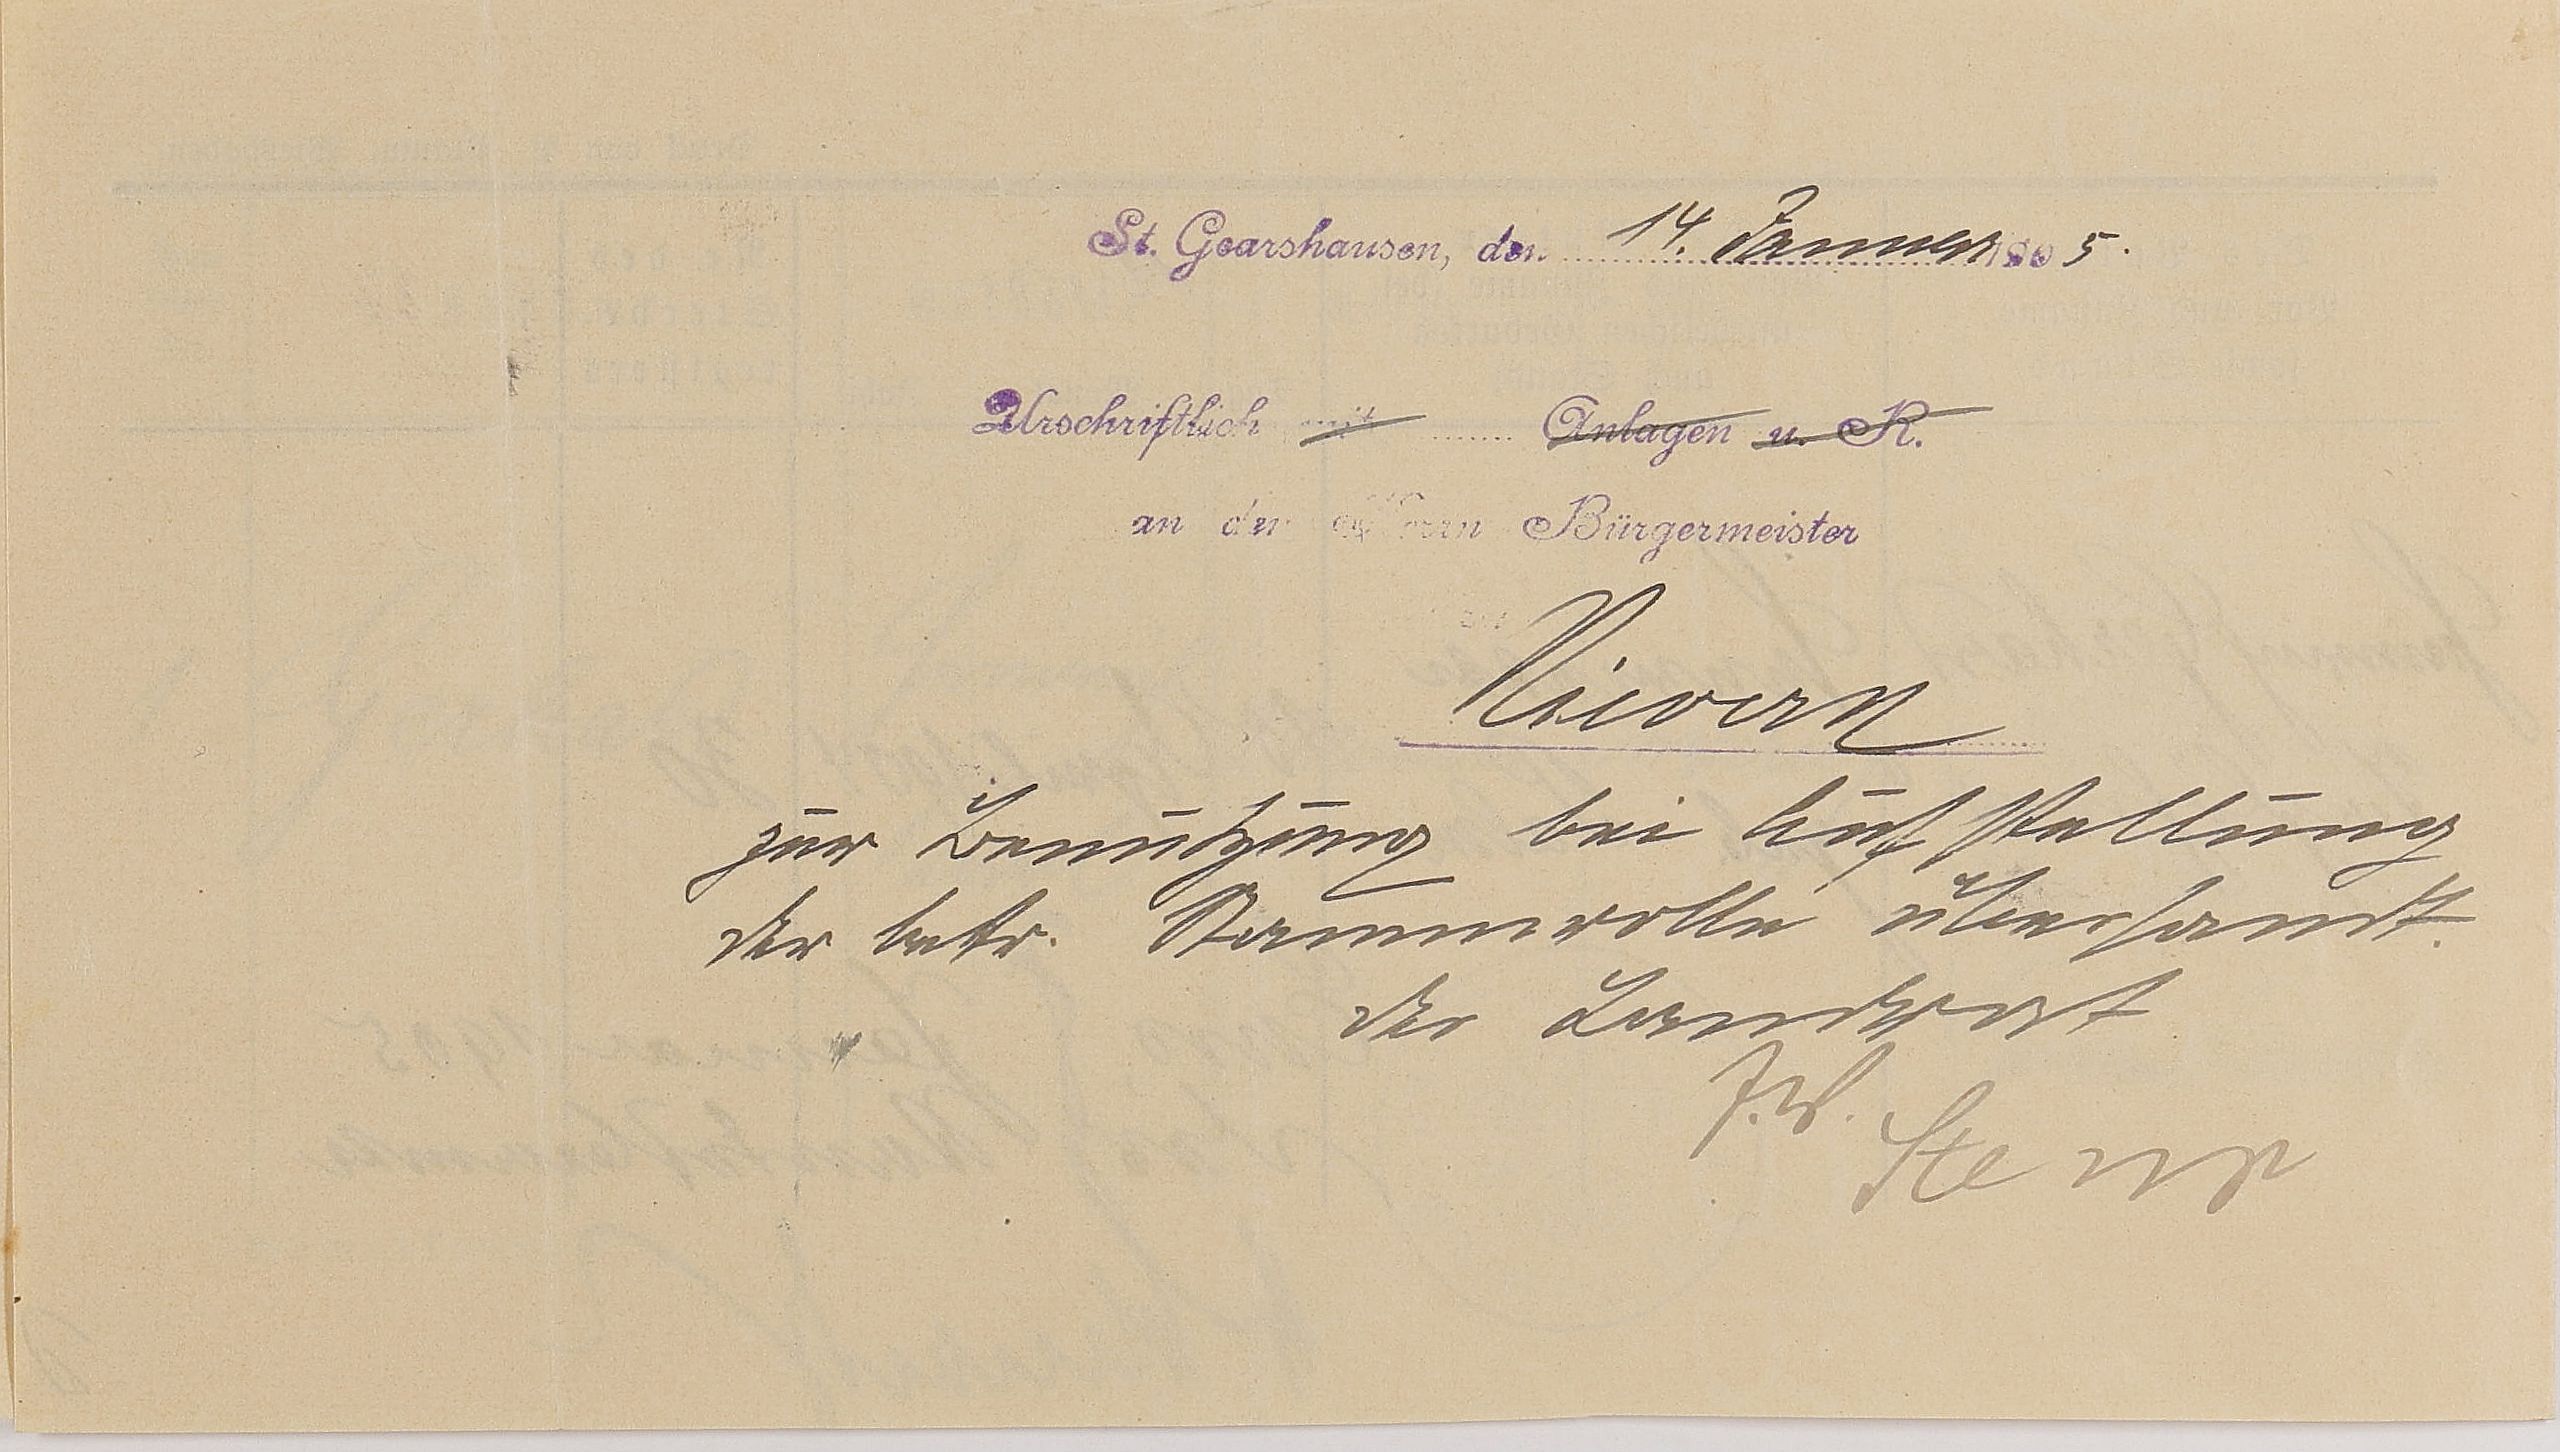 St. Goarshausen, den 14. Januar 1905.
Urschriftlich mit ....... Anlagen u. R.
an den Herrn Bürgermeister
zu
Nievern
zur Benutzung bei Aufstellung
der betr. Stammrolle übersandt.
Der Landrat
J.V.